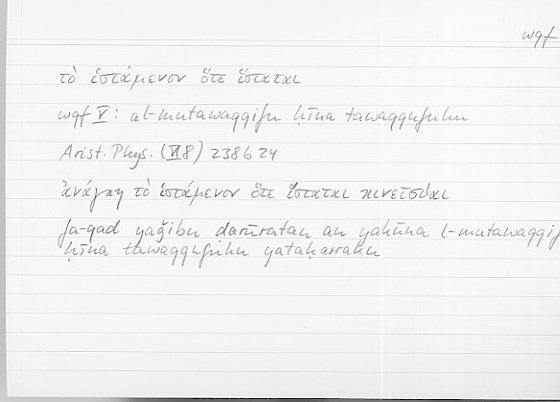 wqf
τὸ ἱστάμενον ὅτε ἵσταται
wqf V: al-mutawaqqifu ḥīna tawaqqufuhu
Arist. Phys. (VI 8) 238b24
ἀνάγκη τὸ ἱστάμενον ὅτε ἵσταται κινεῖσθαι
fa-qad yaǧibu ḍarūratan an yakūna l-mutawaqqif
ḥīna tawaqqufuhu yataḥarraku